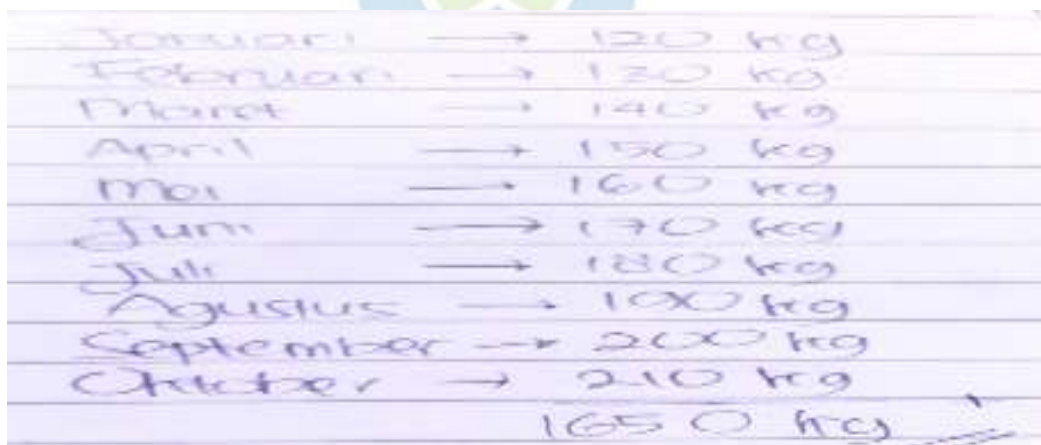 Januari → 120 kg
Februari → 130 kg
Maret → 140 kg
April → 150 kg
Mei → 160 kg
Juni → 170 kg
Juli → 180 kg
Agustus → 190 kg
September → 200 kg
Oktober → 210 kg
1650 kg